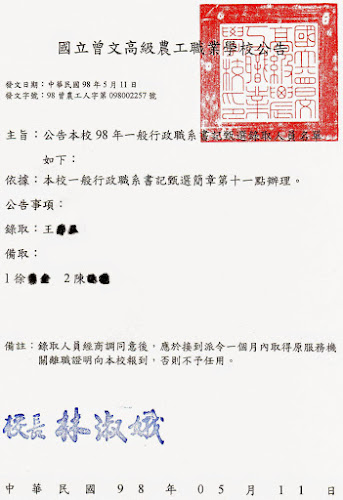 國立曾文高級農工職業學校公告
發文日期：中華民國98年5月11日
發文字號：98曾農工人字第098002257號
主旨：公告本校98年一般行政職系書記甄選錄取人員名單
如下：
依據：本校一般行政職系書記甄選簡章第十一點辦理。
公告事項：
錄取：王
備取：
1徐 2陳
備註：錄取人員經商調同意後，應於接到派令一個月內取得原服務機
關離職證明向本校報到，否則不予任用。
校長 林淑娥
中華民國98年05月11日